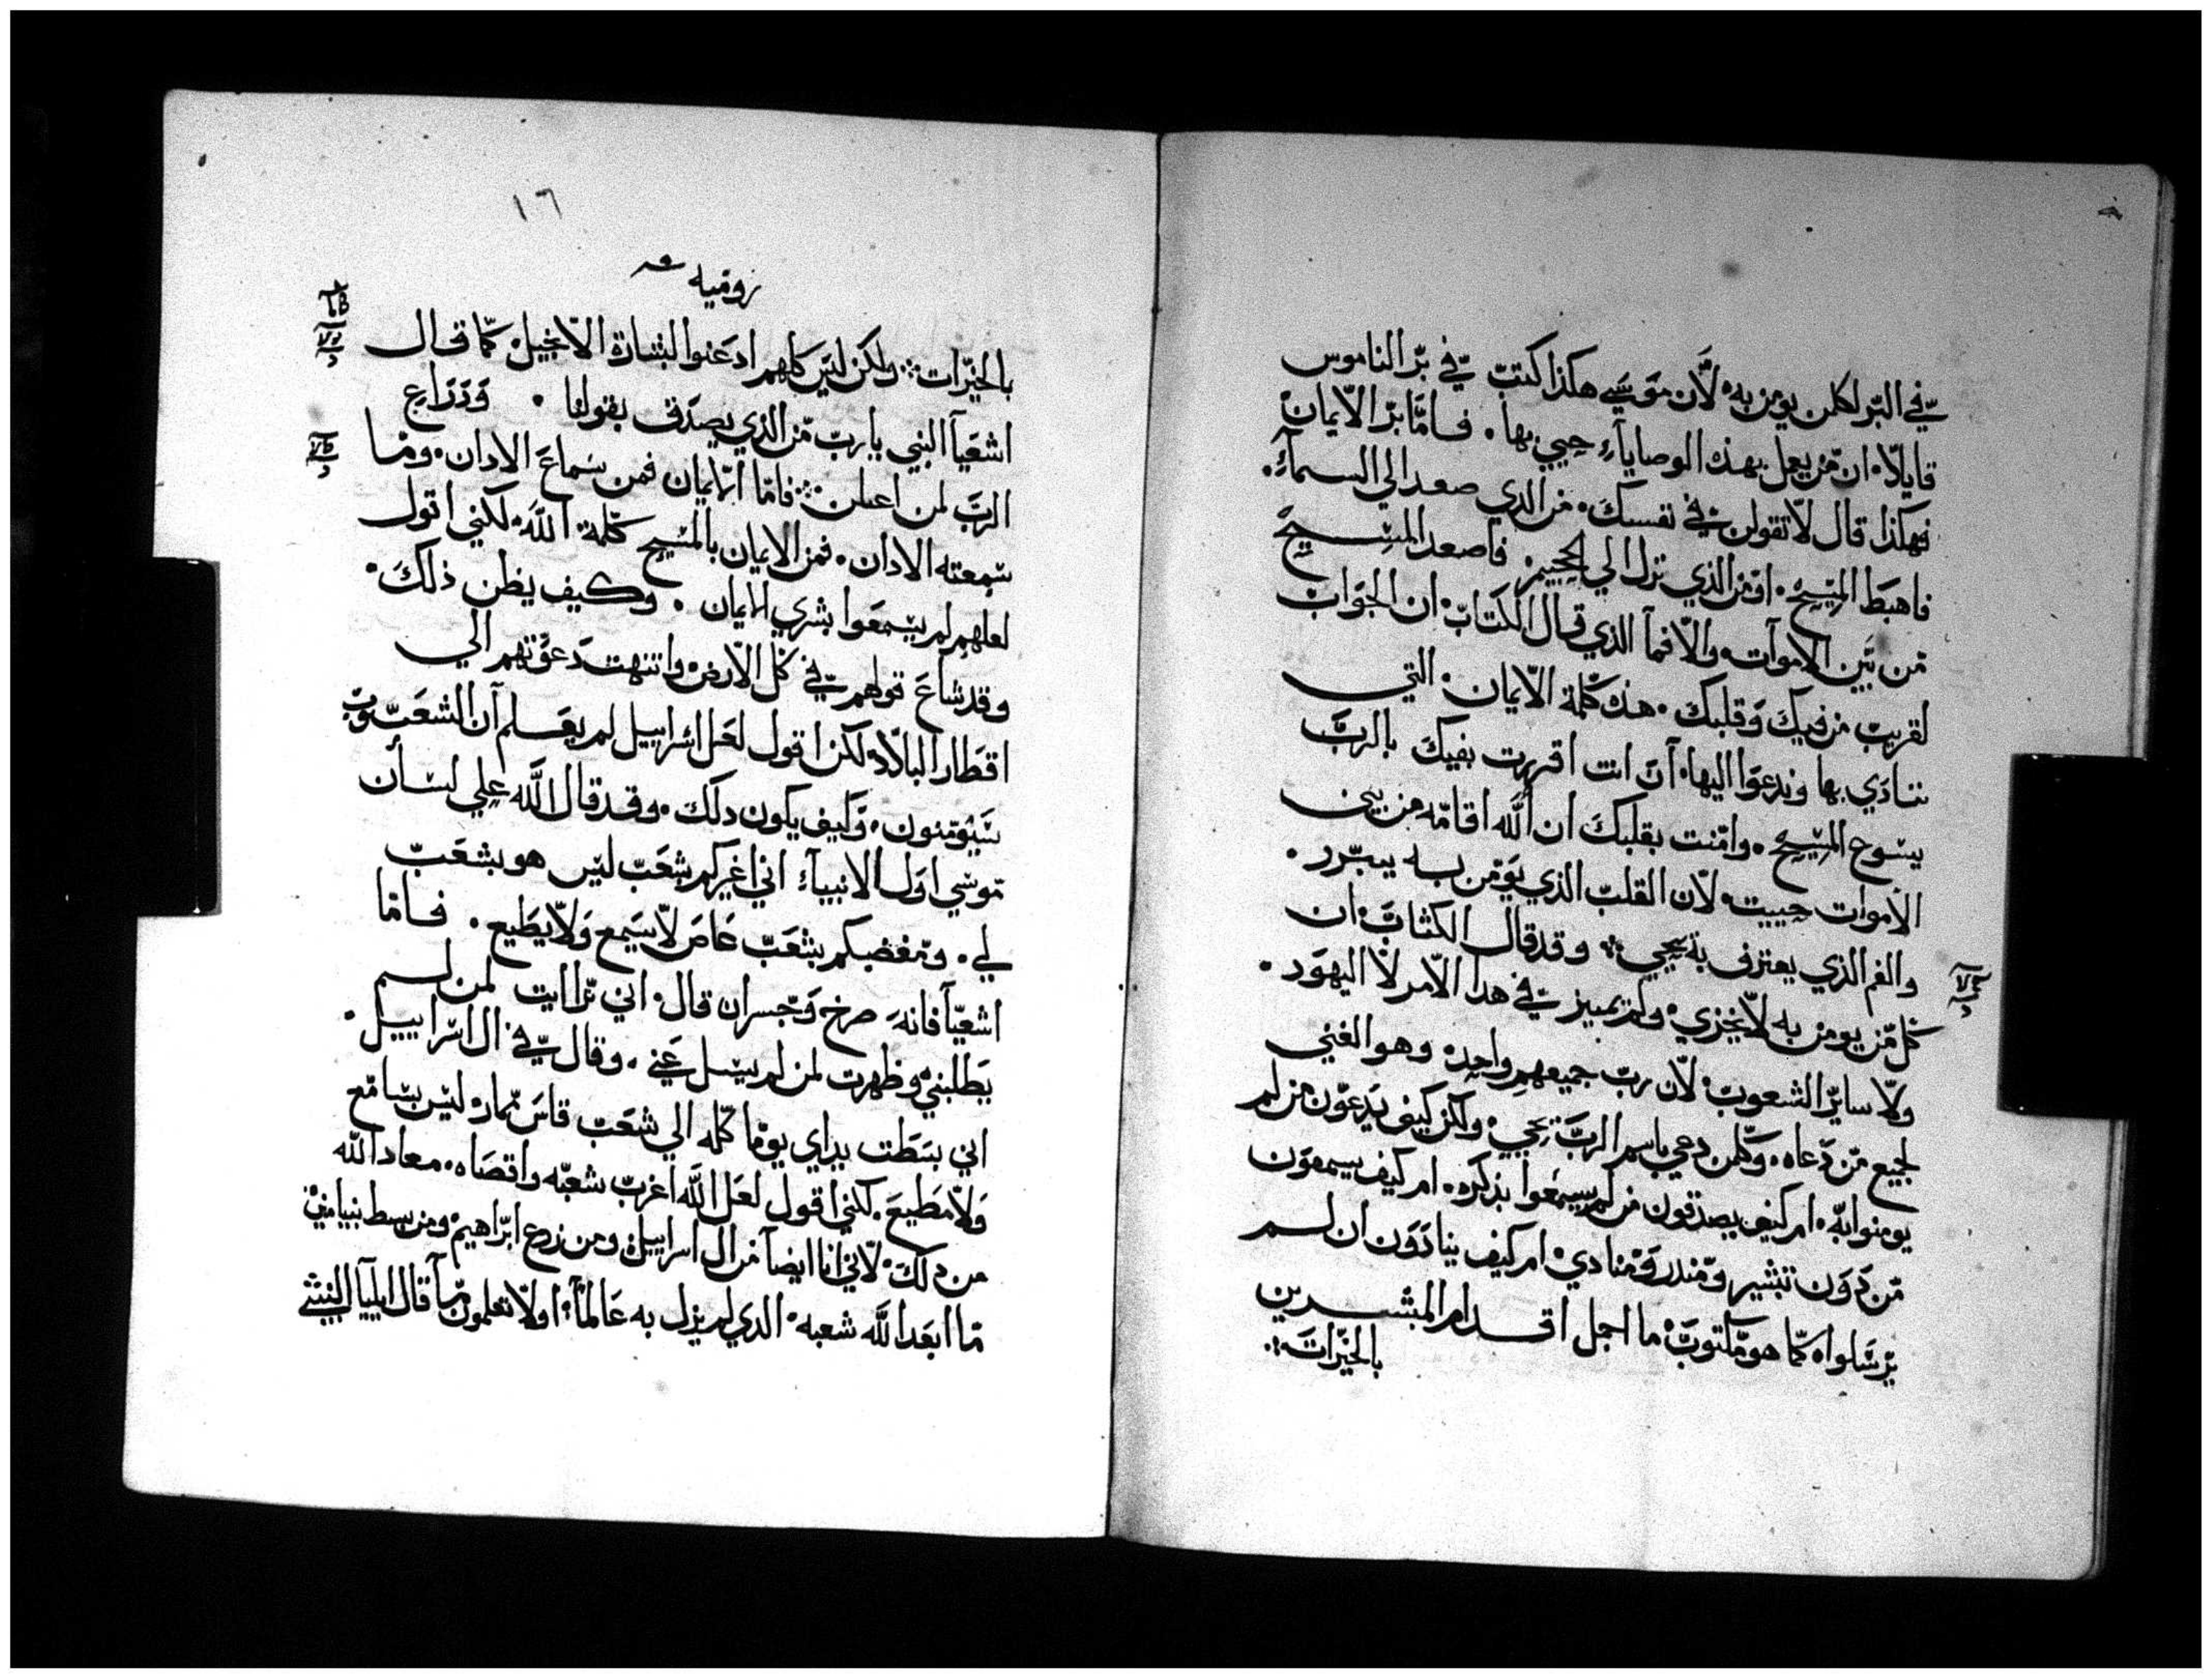 في البر لكلمن يومن به لان موسي هكذا كتب في بر الناموس
قايلا ان من يعمل بهذه الوصاياء حيي بها فاما بر الايمان
فهكذا قال لا تقولن في نفسك من الذي صعد الي السماء
فاهبط المسيح او من الذي نزل الي الجحيم فاصعد المسيح
من بين الاموات والا فما الذي قال الكتاب ان الجواب
لقريب من فيك وقلبك هذه كلمة الايمان التي
ننادي بها وندعوا اليها ان انت اقررت بفيك بالرب
يسوع المسيح وامنت بقلبك ان الله اقامه من بين
الاموات حييت لان القلب الذي يومن به يبرر
والفم الذي يعترف به يحيي وقد قال الكتاب ان
كل من يومن به لا يخزي ولم يميز في هدا الامر لا اليهود
ولا ساير الشعوب لان رب جميعهم واحد وهو الغني
لجميع من دعاه وكلمن دعي باسم الرب يحيي ولكن كيف يدعون من لم
يومنوا به ام كيف يصدقون من لم يسمعوا بذكره ام كيف يسمعون
من دون تبشير ومندر ومنادي ام كيف ينادون ان لم
يرسلوا كما هو مكتوب ما اجمل اقدام المبشرين
بالخيرات
١٦
روميه
بالخيرات ولكن ليس كلهم ادعنوا لبشارة الانجيل كما قال
اشعيا النبي يا رب من الذي يصدق بقولنا ودراع
الرب لمن اعلن فاما الايمان فمن سماع الادان وما
سمعته الادان فمن الايمان بالمسيح كلمة الله لكني اقول
لعلهم لم يسمعوا بشري الايمان وكيف يظن ذلك
وقد شاع قولهم في كل الارض وانتهت دعوتهم الي
اقطار البلاد لكن اقول لعل اسراييل لم يعلم ان الشعوب
سيومنون وكيف يكون دلك وقد قال الله علي لسان
موسي اول الانبياء اني اغيركم بشعب ليس هو بشعب
لي ومغضبكم بشعب عاص لا يسمع ولا يطيع فاما
اشعيا فانه صرخ وجسر ان قال اني تراايت لمن لم
يطلبني وظهرت لمن لم يسل عني وقال في ال اسراييل
اني بسطت يداي يوما كله الي شعب قاس ممار ليس بسامع
ولا مطيع لكني اقول لعل الله اغرب شعبه واقصاه معاد الله
من دلك لاني انا ايضا من ال اسراييل ومن زرع ابراهيم ومن سبط بنيامين
ما ابعد الله شعبه الدي لم يزل به عالما اولا تعلمون ما قال ايليا النبي